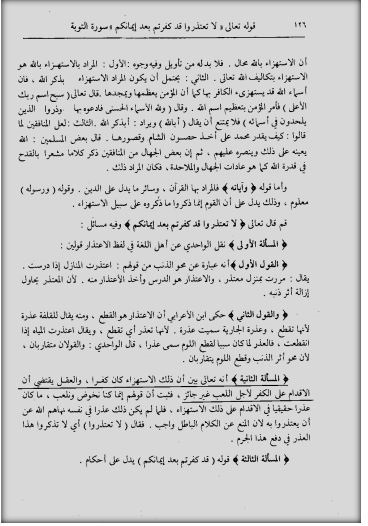 ١٢٦ قوله تعالى « لا تعتذروا قد كفرتم بعد إيمانكم » سورة التوبة
أن الاستهزاء بالله محال . فلا بد له من تأويل وفيه وجوه : الأول : المراد بالاستهزاء بالله هو
الاستهزاء بتكاليف الله تعالى . الثانى : يحتمل أن يكون المراد الاستهزاء بذكر الله ، فان
أسماء الله قد يستهزىء الكافر بها كما أن المؤمن يعظمها ويمجدها . قال تعالى ( سبح اسم ربك
الأعلى ) فأمر المؤمن بتعظيم اسم الله . وقال ( ولله الأسماء الحسنى فادعوه بها وذروا الذين
يلحدون في أسمائه ) فلا يمتنع أن يقال ( أبالله ) ويراد : أبذكر الله . الثالث : لعل المنافقين لما
قالوا : كيف يقدر محمد على أخذ حصون الشام وقصورها . قال بعض المسلمين : الله
يعينه على ذلك وينصره عليهم ، ثم إن بعض الجهال من المنافقين ذكر كلاما مشعرا بالقدح
في قدرة الله كما هو عادات الجهال والملاحدة ، فكان المراد ذلك .
وأما قوله ﴿ وآياته ﴾ فالمراد بها القرآن ، وسائر ما يدل على الدين . وقوله ( ورسوله )
معلوم ، وذلك يدل على أن القوم إنما ذكروا ما ذكروه على سبيل الاستهزاء .
ثم قال تعالى ﴿ لا تعتذروا قد كفرتم بعد إيمانكم ﴾ وفيه مسائل :
﴿ المسألة الأولى ﴾ نقل الواحدي عن أهل اللغة في لفظ الاعتذار قولين :
﴿ القول الأول ﴾ أنه عبارة عن محو الذنب من قولهم : اعتذرت المنازل إذا درست .
يقال : مررت بمنزل معتذر ، والاعتذار هو الدرس وأخذ الاعتذار منه . لأن المعتذر يحاول
إزالة أثر ذنبه .
﴿ والقول الثاني ﴾ حكى ابن الأعرابي أن الاعتذار هو القطع ، ومنه يقال للقلفة عذرة
لأنها تقطع ، وعذرة الجارية سميت عذرة . لأنها تعذر أي تقطع ، ويقال اعتذرت المياه إذا
انقطعت ، فالعذر لما كان سببا لقطع اللوم سمى عذرا ، قال الواحدي : والقولان متقاربان ،
لأن محو أثر الذنب وقطع اللوم يتقاربان .
﴿ المسألة الثانية ﴾ أنه تعالى بين أن ذلك الاستهزاء كان كفرا ، والعقل يقتضي أن
الاقدام على الكفر لأجل اللعب غير جائز ، فثبت أن قولهم إنما كنا نخوض ونلعب ، ما كان
عذرا حقيقيا في الاقدام على ذلك الاستهزاء ، فلما لم يكن ذلك عذرا في نفسه نهاهم الله عن
أن يعتذروا به لأن المنع عن الكلام الباطل واجب . فقال ( لا تعتذروا ) أي لا تذكروا هذا
العذر في دفع هذا الجرم .
﴿ المسألة الثالثة ﴾ قوله ( قد كفرتم بعد إيمانكم ) يدل على أحكام .